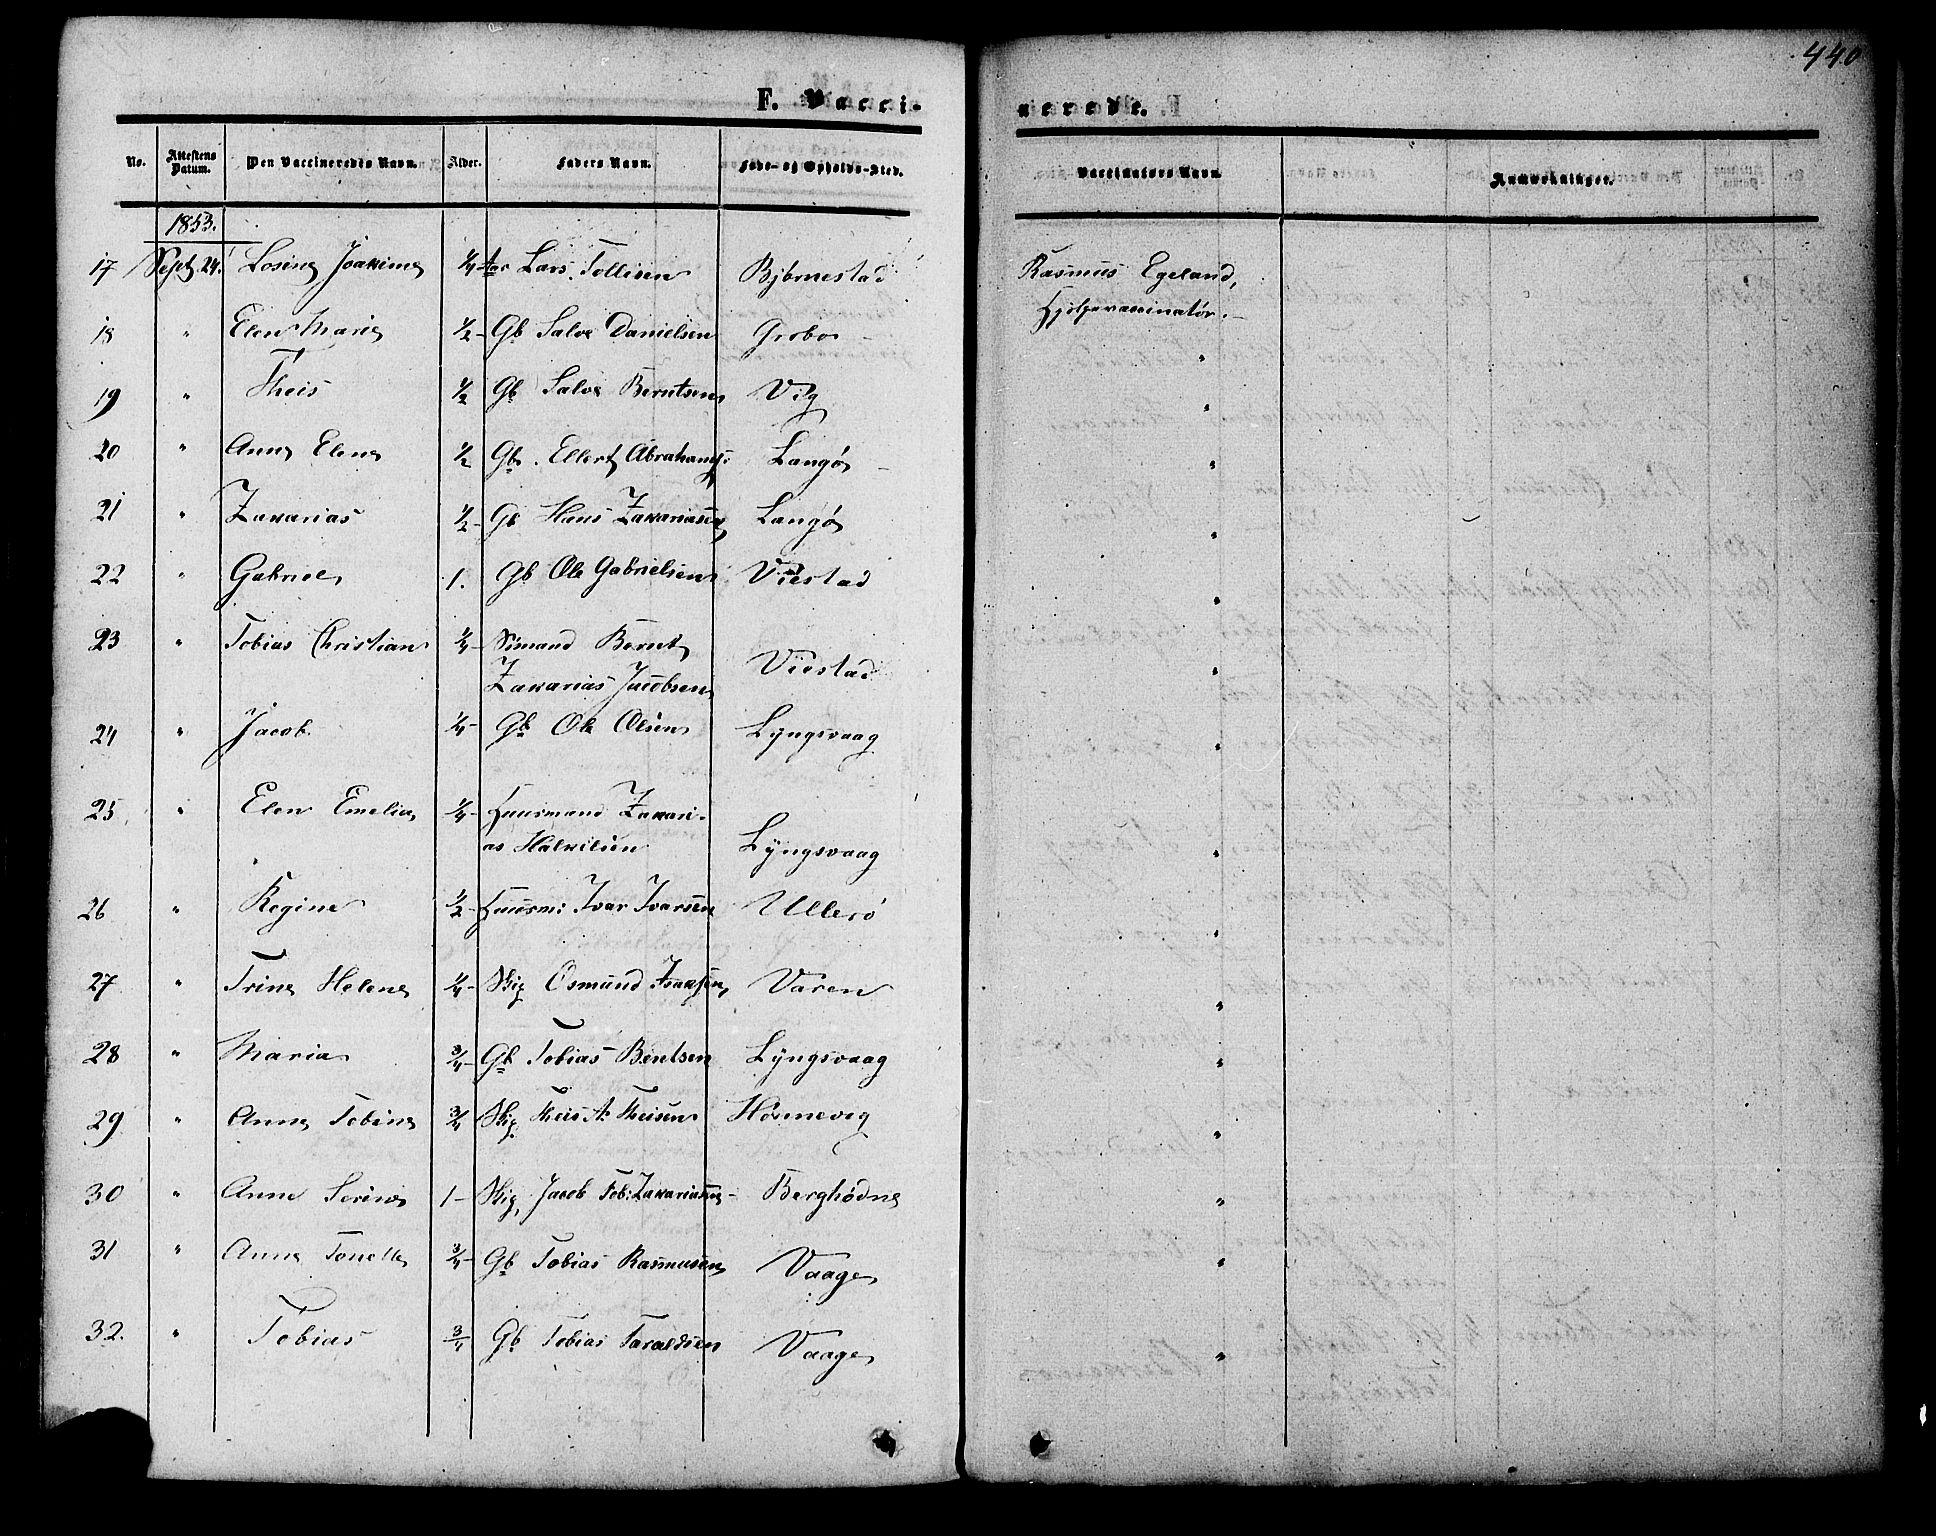 440
F. Vaccinerede.
No. Attestens Datum. Den Vaccineredes Navn. Alder. Faders Navn. Føde- og Opholds-Sted. Vaccinators Navn. Anmærkninger.
1853.
17 Sept. 24. Losine Joakime 1/4 Aar Lars Tollisen Bjørnestad Rasmus Egeland,
Hjelpevaxinatør.
18 " Elen Marie 1/2 - Gb Salve Danielsen Grobo - "
19 " Theis 1/2 Gb Salve Berntsen Vig "
20 " Anne Elene 1/2 Gb. Ellert Abrahams: Langø - "
21 " Zakarias 1/2 - Gb Hans Zakariassen Langø "
22 " Gabriel 1. Gb Ole Gabrielsen Viestad "
23 " Tobias Christian 1/4 - Sömand Bernt
Zakarias Jacobsen Viestad "
24 " Jacob. 1/4 - Gb Ole Olsen Lyngsvaag "
25 " Elen Emelia 1/4 - Huusmand Zakari-
as Halvilsen Lyngsvaag "
26 " Regine 1/2 - Huusm: Ivar Ivarsen Ullerö "
27 " Trine Helene 1/4 - Skip Osmund Isaksen Varen "
28 " Maria 3/4 - Gb Tobias Bentsen Lyngsvaag "
29 " Anne Tobine 3/4 Skip. Theis A. Theisen Hörnevig "
30 " Anne Serine 1 - Skip, Jacob Tob: Zakariassen - Berghødne "
31 " Anne Tonette 3/4 - Gb Tobias Rasmussen Vaage "
32. " Tobias 3/4 Gb Tobias Taraldsen Vaage "